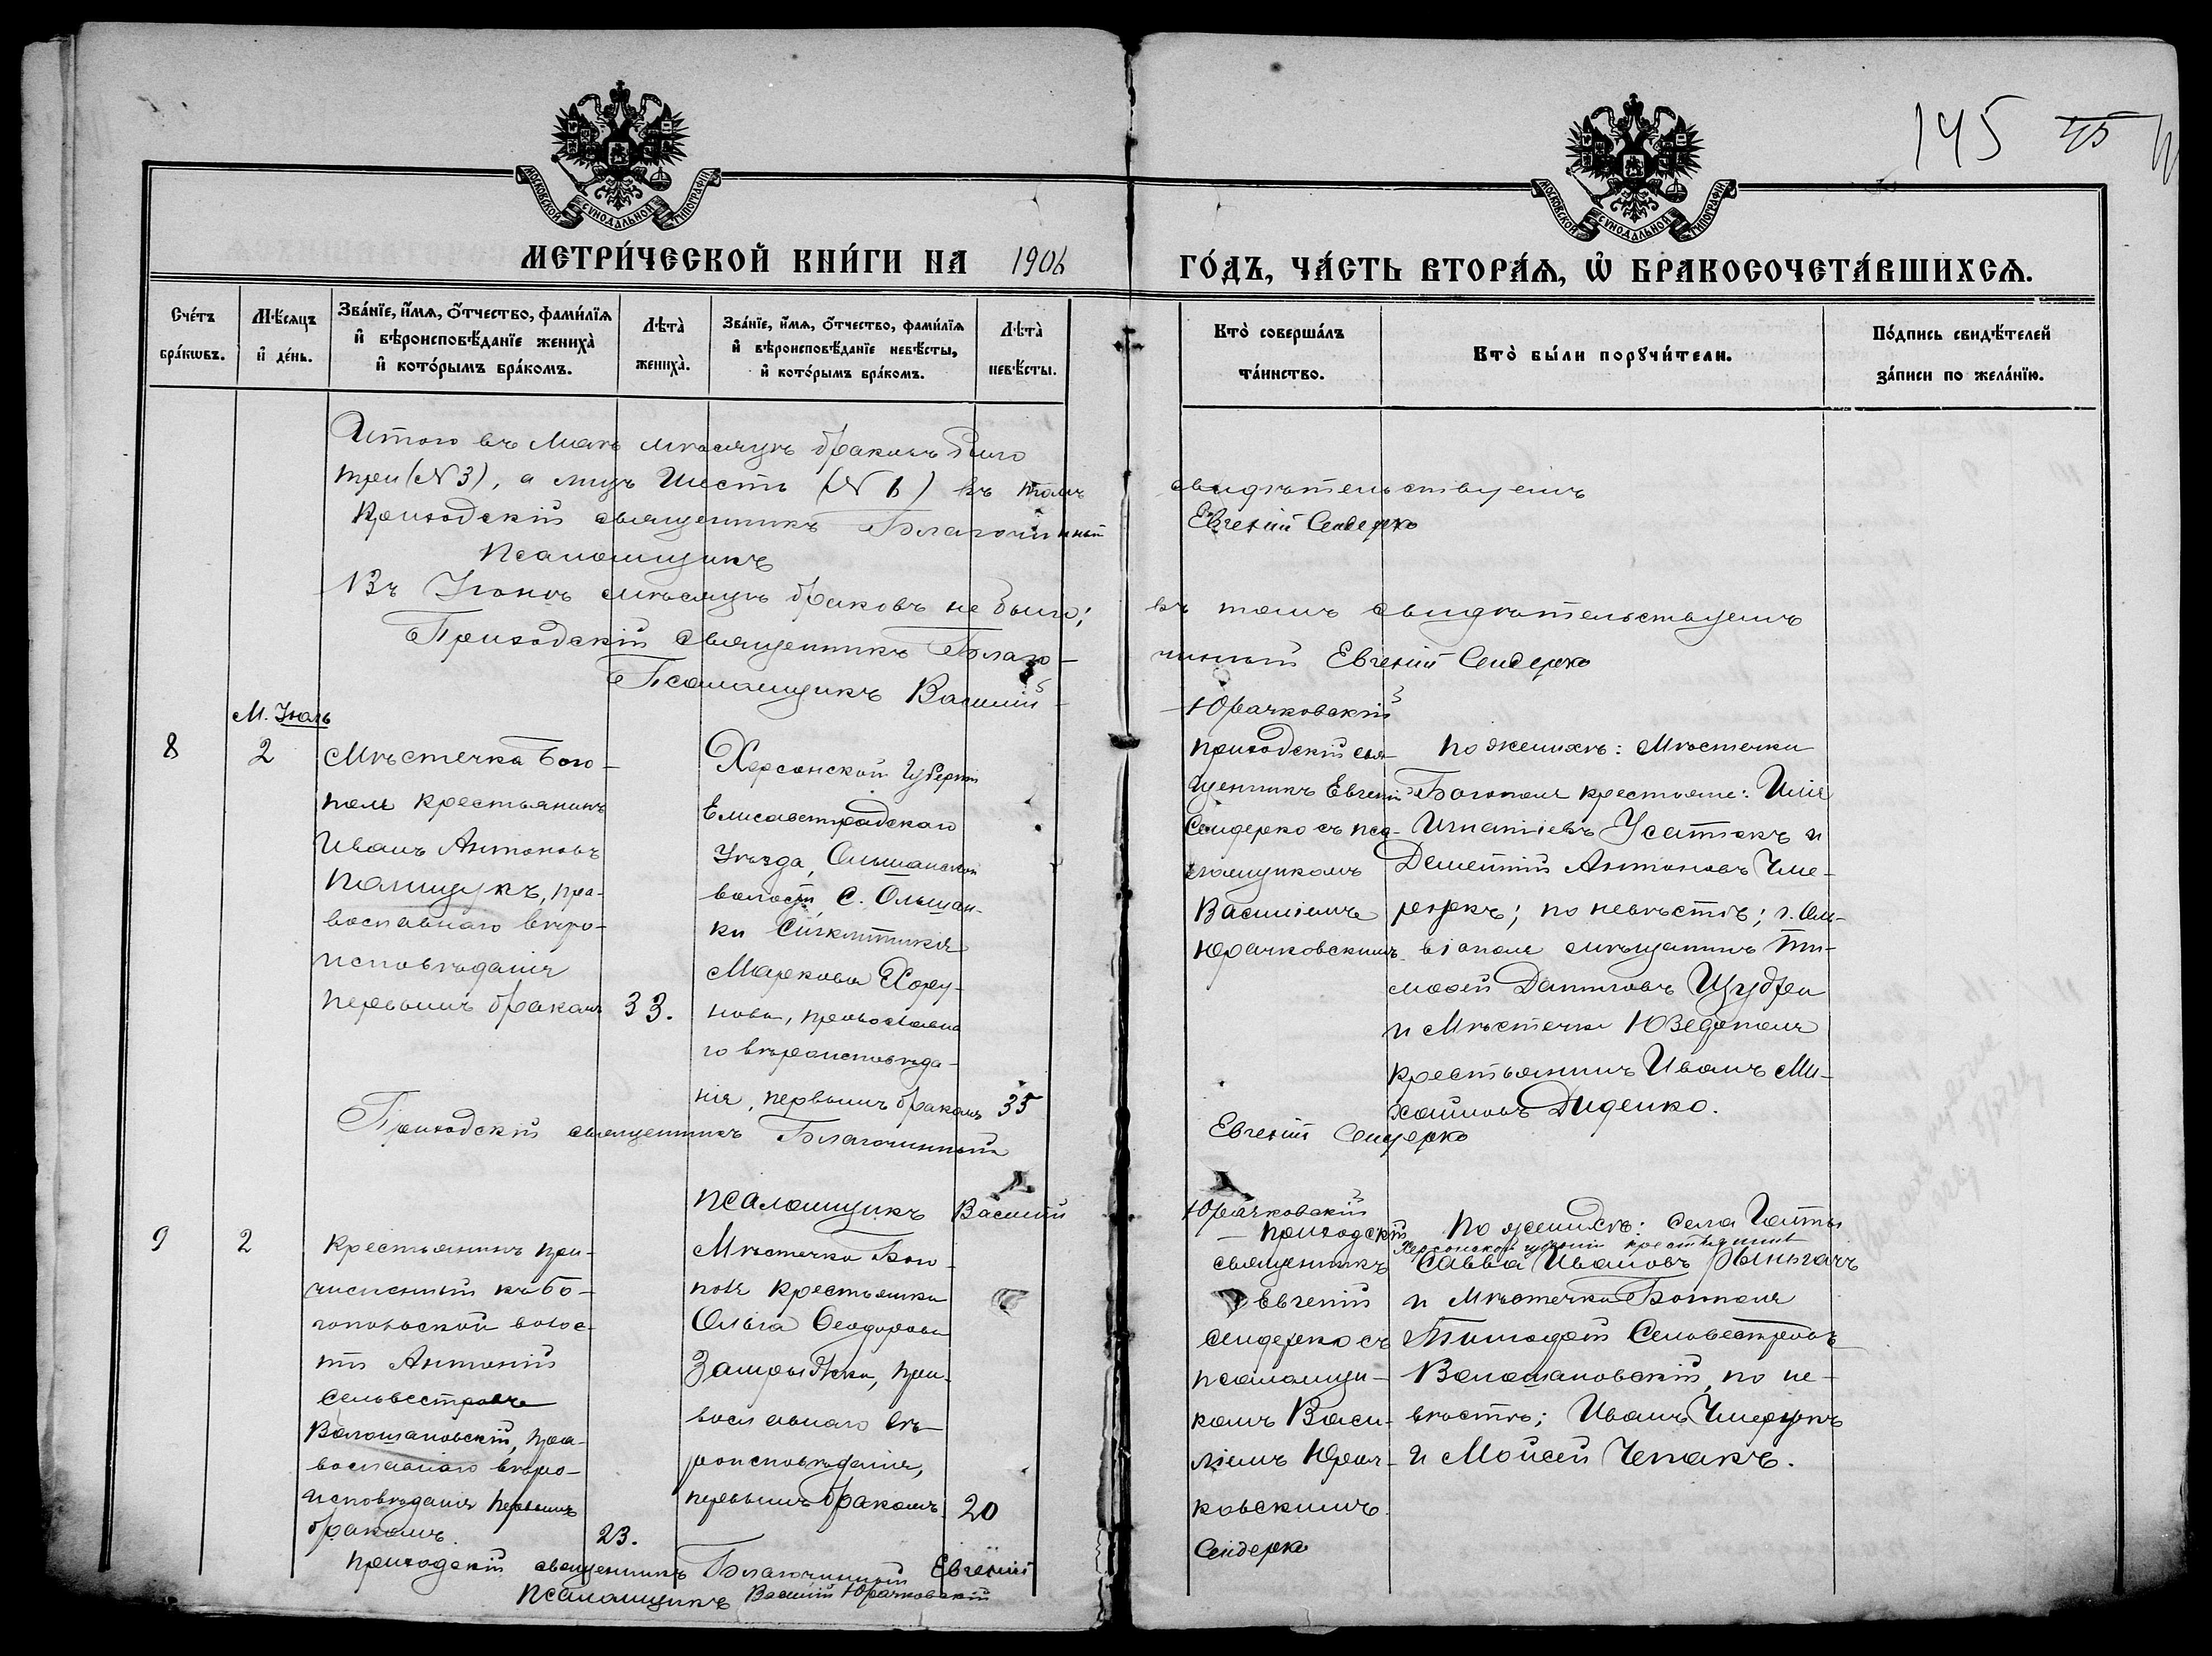 145 45
МОСКОВСКОЙ СУНОДАЛЬНОЙ ТИПОГРАФІИ
МОСКОВСКОЙ СУНОДАЛЬНОЙ ТИПОГРАФІИ
МЕТРИ́ЧЕСКОЙ КНИ́ГИ НА 1906
ГО́ДЪ, ЧА́СТЬ ВТОРА́Ѧ, Ѽ БРАКОСОЧЕТА́ВШИХСѦ.
Сче́тъ бра́кѡвъ.
Мѣ́сяцъ и҆ де́нь.
Зва́нїе, и҆́мѧ, ѻ҆́тчество, фами́лїѧ
и҆ вѣроисповѣ́данїе жениха̀
и҆ кото́рымъ бра́комъ.
Лѣта̀ жениха̀.
Зва́нїе, и҆́мѧ, ѻ҆́тчество, фами́лїѧ
и҆ вѣроисповѣ́данїе невѣ́сты,
и҆ кото́рымъ бра́комъ.
Лѣта̀ невѣ́сты.
Кто̀ соверша́лъ та́инство.
Кто̀ бы́ли порꙋчи́тели.
По́дпись свидѣ́телей за́писи по жела́нїю.
Итого въ Маѣ мѣсяцѣ браковъ было
три (№ 3), а лицъ шесть (№ 6) въ томъ
свидѣтельствуемъ
Приходскій священникъ Благочинный
Евгеній Сендерко
Псаломщикъ
Въ Іюнѣ мѣсяцѣ браковъ не было;
въ томъ свидѣтельствуемъ
Приходскій священникъ Благо-
чинный Евгеній Сендерко
Псаломщикъ Василій
Юрачковскій
М. Іюль
8
2
Мѣстечка Бого-
поля крестьянинъ
Иванъ Антоновъ
Полищукъ, пра-
вославнаго вѣро-
исповѣданія
первымъ бракомъ
33.
Херсонской губерніи
Елисаветградскаго
уѣзда, Ольшанской
волости, с. Ольшан-
ки Сигклитикія
Маркова Хору-
нова, православна
го вѣроисповѣда-
нія, первымъ бракомъ
35
Приходскій свя-
щенникъ Евгеній
Сендерко съ пса-
ломщикомъ
Василіемъ
Юрачковскимъ.
По женихѣ: Мѣстечка
Богополя крестьяне: Илія
Игнатіевъ Усатюкъ и
Дементій Антоновъ Чме-
рукъ; по невѣстѣ; г. Оль-
віополя мѣщанинъ Ти-
мофей Даниловъ Щудри
и Мѣстечка Юзефполя
крестьянинъ Иванъ Ми-
хайловъ Диденко.
Приходскій священникъ Благочинный
Евгеній Сендерко
Псаломщикъ Василій
Юрачковскій
9
2
Крестьянинъ при-
численный къ Бо-
гопольской волос-
ти Антоній
Сельвестровъ
Волошановскій, пра-
вославнаго вѣро-
исповѣданія первымъ
бракомъ.
23.
Мѣстечка Бого-
поля крестьянка
Ольга Ѳеодорова
православнаго вѣ-
роисповѣданія,
первымъ бракомъ.
20
Приходскій
священникъ
Евгеній
Сендерко съ
псаломщи-
комъ Васи-
ліемъ Юрач-
ковскимъ.
По женихѣ: села Гольты
Херсонской губерніи крестьянинъ
Савва Ивановъ Рыньгачъ
и Мѣстечка Богополя
Тимофей Сельвестровъ
Волошановскій, по не-
вѣстѣ; Иванъ Чмерукъ
и Мойсей Чепакъ.
Приходскій священникъ Благочинный Евгеній
Сендерко
Псаломщикъ Василій Юрачковскій